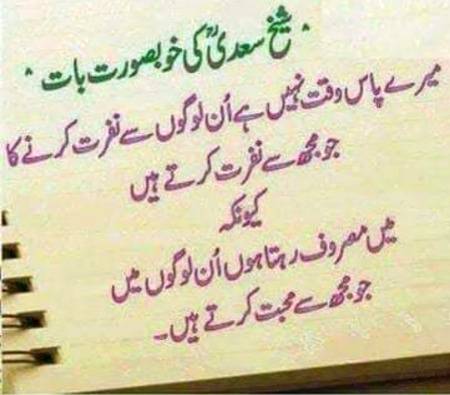 شیخ سعدیؒ کی خوبصورت بات
میرے پاس وقت نہیں ہے اُن لوگوں سے نفرت کرنے کا
جو مجھ سے نفرت کرتے ہیں
کیونکہ
میں مصروف رہتا ہوں اُن لوگوں میں
جو مجھ سے محبت کرتے ہیں۔